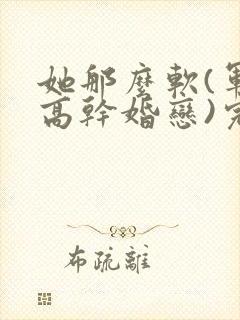 她那麼軟(軍
高幹婚戀)完
布疏離